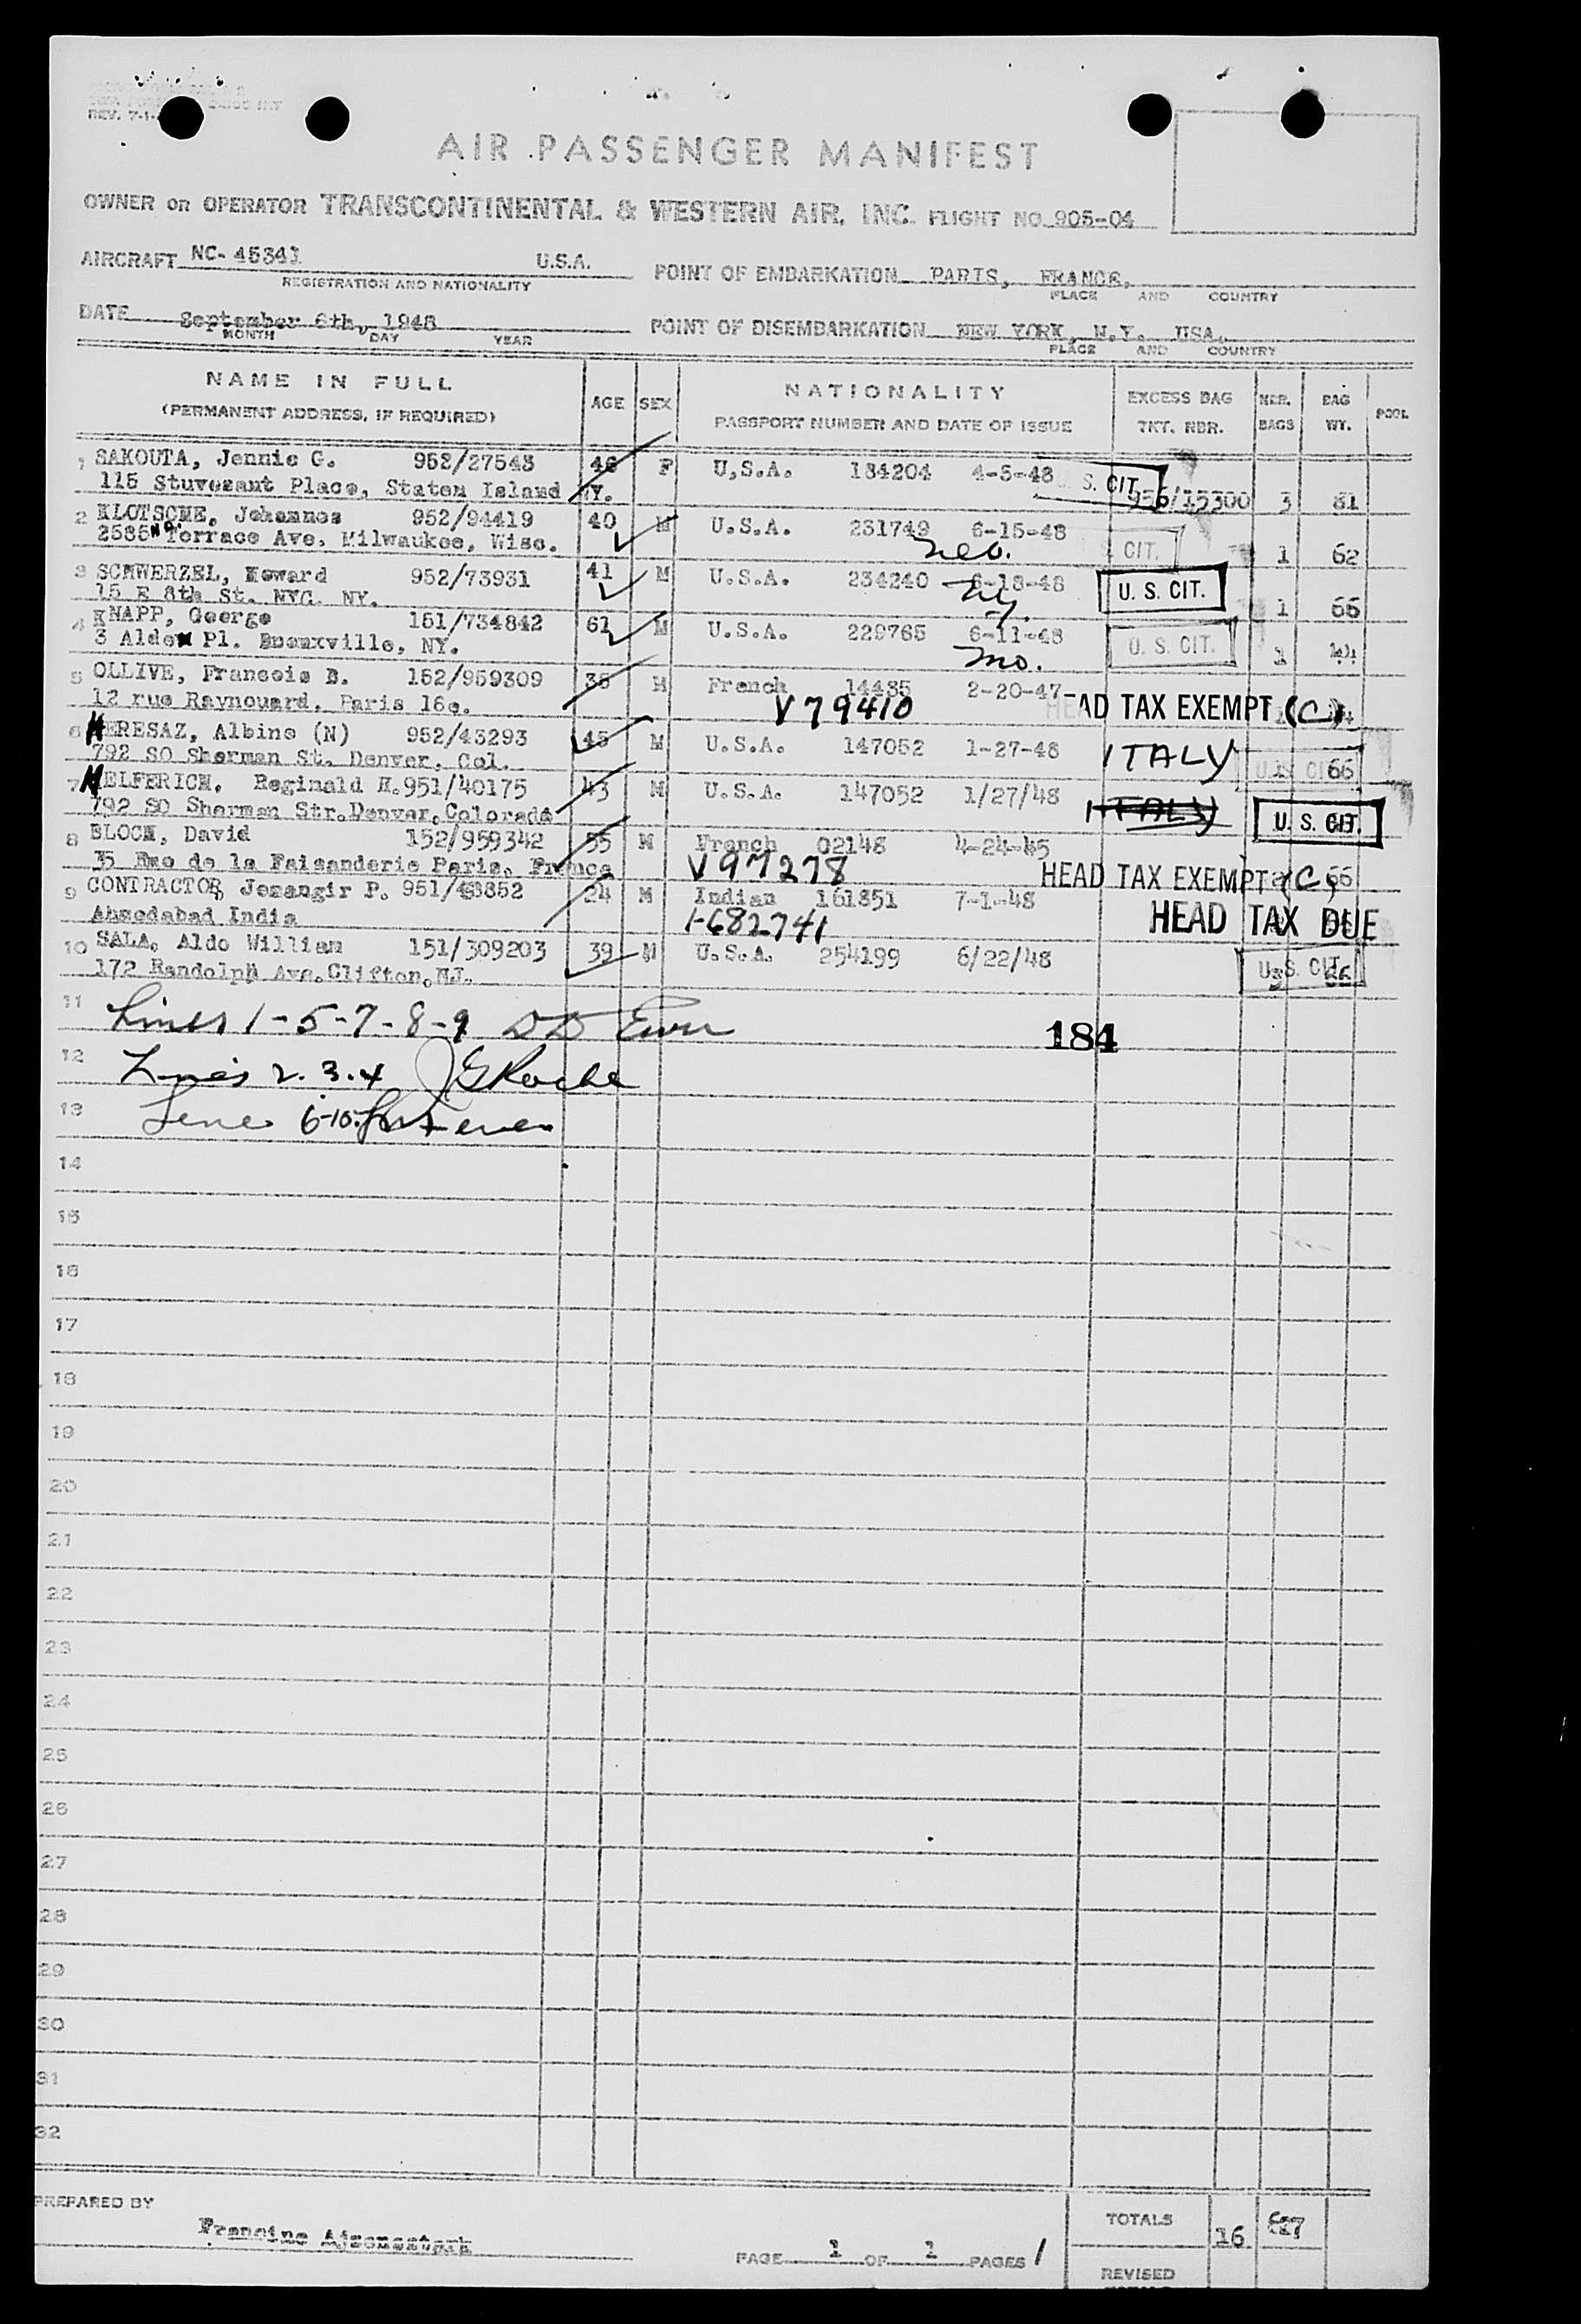 REV. 7-1-
AIR PASSENGER MANIFEST
OWNER OR OPERATOR TRANSCONTINENTAL & WESTERN AIR, INC. FLIGHT NO. 905-04
AIRCRAFT NC-45341 U.S.A. POINT OF EMBARKATION PARIS, FRANCE,
REGISTRATION AND NATIONALITY PLACE AND COUNTRY
DATE September 6th, 1948 POINT OF DISEMBARKATION NEW YORK, N.Y. USA.
MONTH DAY YEAR PLACE AND COUNTRY
NAME IN FULL AGE SEX NATIONALITY EXCESS BAG NBR. BAG POOL
(PERMANENT ADDRESS, IF REQUIRED) PASSPORT NUMBER AND DATE OF ISSUE TKT. NBR. BAGS WT.
1 SAKOUTA, Jennie G. 952/27543 46 F U.S.A. 184204 4-5-48 U. S. CIT.
115 Stuvesant Place, Staten Island NY. 956/15300 3 81
2 KLOTSCHE, Johannes 952/94419 40 M U.S.A. 231749 6-15-48
2585 No. Terrace Ave. Milwaukee, Wisc. Neb. S. CIT. 1 62
3 SCHWERZEL, Howard 952/73931 41 M U.S.A. 234240 6-18-48 U. S. CIT.
15 E 8th St. NYC. NY. NY. 1 66
4 KNAPP, George 151/734842 61 M U.S.A. 229765 6-11-48 U. S. CIT.
3 Alden Pl. Bronxville, NY. Mo. 1 44
5 OLLIVE, Francois B. 152/959309 35 M French 14485 2-20-47
12 rue Raynouard, Paris 16e. V 79410 HEAD TAX EXEMPT (C)
6 HERESAZ, Albino (N) 952/43293 45 M U.S.A. 147052 1-27-48 ITALY
792 SO Sherman St. Denver, Col. U. S. CIT. 66
7 HELFERICH, Reginald H. 951/40175 43 M U.S.A. 147052 1/27/48 ITALY
792 SO Sherman Str. Denver, Colorado U. S. CIT.
8 BLOCH, David 152/959342 55 M French 02148 4-24-45
35 Rue de la Faisanderie Paris, France V 97278 HEAD TAX EXEMPT (C) 66
9 CONTRACTOR, Jehangir P. 951/43852 24 M Indian 161351 7-1-48
Ahmedabad India I-682741 HEAD TAX DUE
10 SALA, Aldo William 151/309203 39 M U.S.A. 254199 6/22/48
172 Randolph Ave. Clifton, NJ. U. S. CIT. 3 66
11 Lines 1-5-7-8-9 184
12 Lines 2. 3. 4 J G Roche
13 Line 6-10
14
15
16
17
18
19
20
21
22
23
24
25
26
27
28
29
30
31
32
PREPARED BY
Francine
TOTALS 16 627
PAGE 1 OF 1 PAGES 1
REVISED